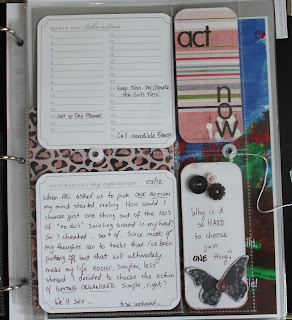 MARCH 2012 take action
Keep, Toss, Sell/Donate
the Girls' Toys
Set up Day Planner
Call Incredible Fitness
act
now
documenting my experience 03/12
When Ali asked us to pick ONE ACTION
my mind started reeling. How could I
choose just one thing out of the 100's
of "to do's" swirling around in my head?
So I cheated... sort of. Since most of
my thoughts ran to tasks that I've been
putting off but that will ultimately
make my life easier, simpler, less
stressed I decided to choose the action
of GETTING ORGANIZED. Simple, right?
We'll see ...
to be continued...
Why is it
so HARD
to choose
just
ONE thing?